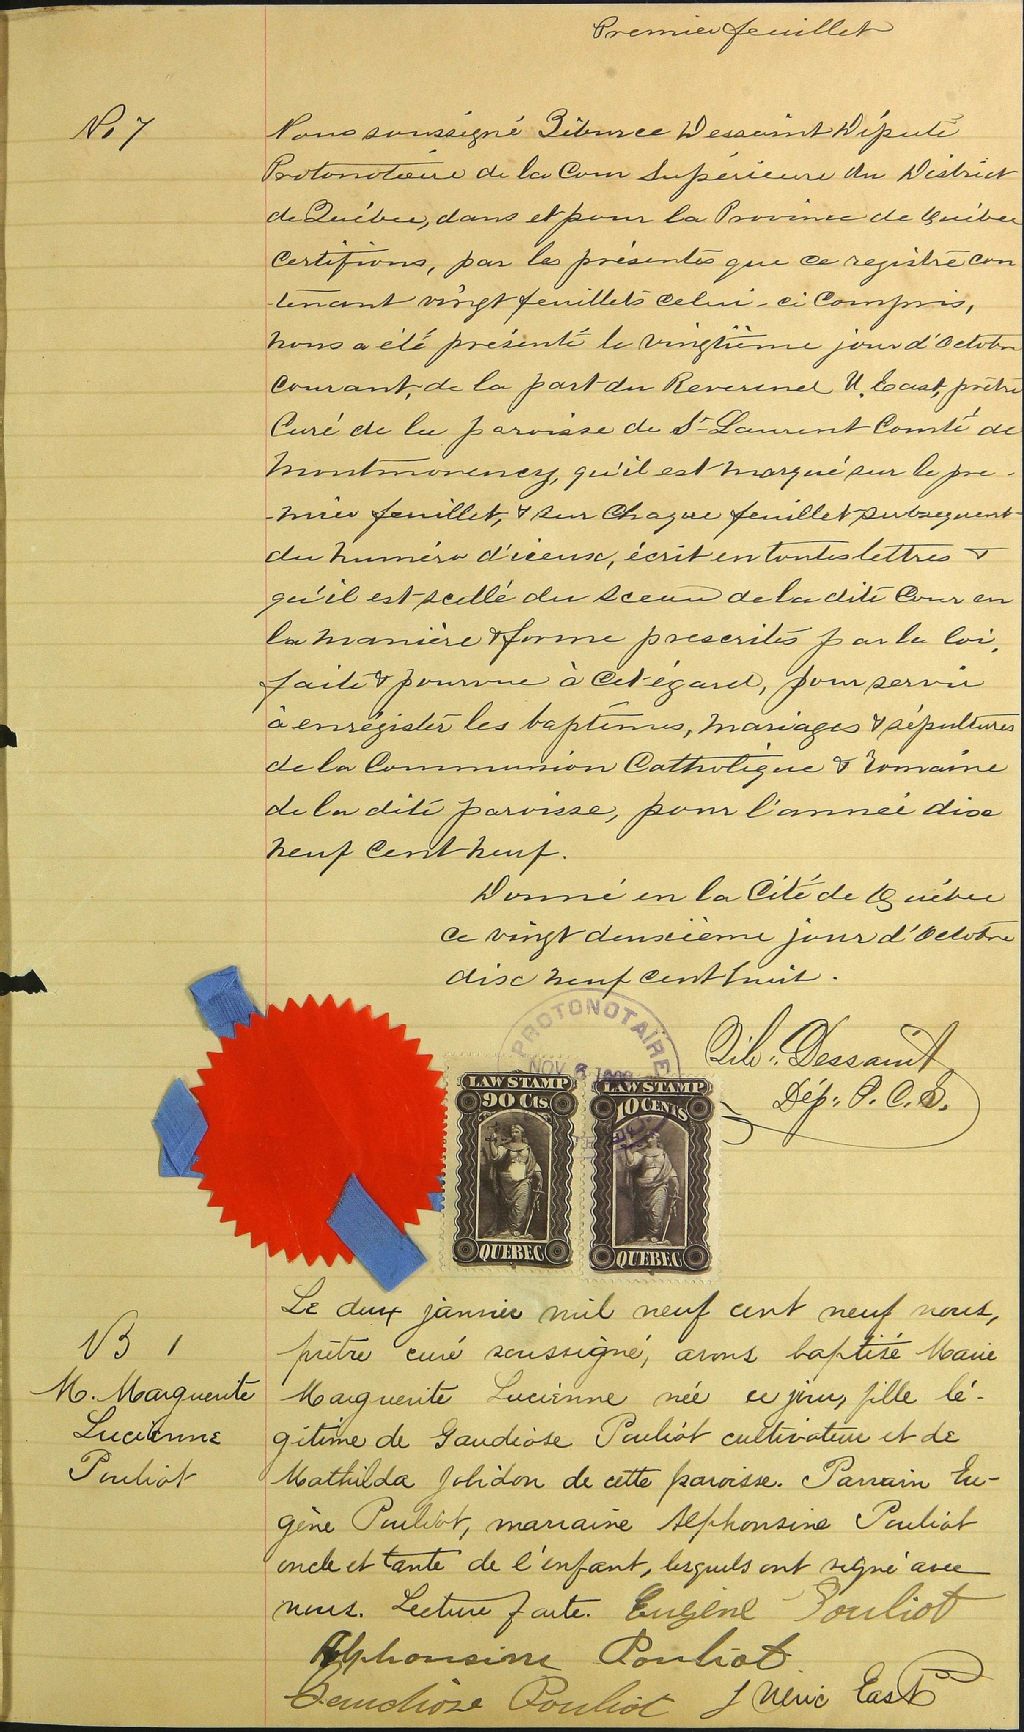 Premier feuillet
No 7
Nous soussigné Tiburce Dessaint Député
Protonotaire de la Cour Supérieure du District
de Québec, dans et pour la Province de Québec
certifions, par les présentes que ce registre con
-tenant vingt feuillets celui-ci compris,
nous a été présenté le vingtième jour d'Octobre
courant, de la part du Reverend U. East, prêtre
Curé de la paroisse de St Laurent Comté de
Montmorency, qu'il est marqué sur le pre-
-mier feuillet, & sur chaque feuillet subsequent
du numéro d'iceux, écrit en toutes lettres &
qu'il est scellé du sceau de la dite Cour en
la manière & forme prescrites par la loi,
faite & pourvue à cet égard, pour servir
à enrégister les baptêmes, mariages & sépultures
de la Communion Catholique & Romaine
de la dite paroisse, pour l'année dix
neuf cent neuf.
Donné en la Cité de Québec
ce vingt deuxième jour d'Octobre
dix neuf cent huit.
PROTONOTAIRE
NOV 6
Tib: Dessaint
Dép: P. C. S.
LAW STAMP
90 Cts.
QUEBEC
LAW STAMP
10 CENTS
QUEBEC
B 1
M. Marguerite
Lucienne
Pouliot
Le deux janvier mil neuf cent neuf nous,
prêtre curé soussigné, avons baptisé Marie
Marguerite Lucienne née ce jour, fille lé-
gitime de Gaudiose Pouliot cultivateur et de
Mathilda Jolidon de cette paroisse. Parrain Eu-
gène Pouliot, marraine Alphonsine Pouliot
oncle et tante de l'enfant, lesquels ont signé avec
nous. Lecture faite. Eugène Pouliot
Alphonsine Pouliot
Gaudiose Pouliot J Ulric East Ptre